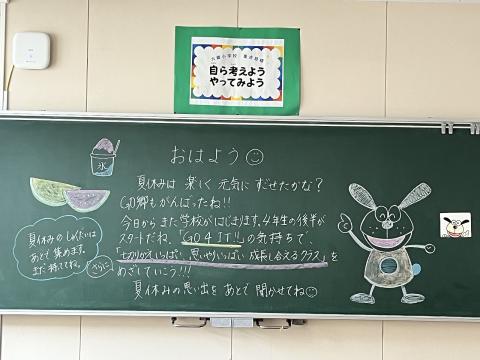 自ら考えよう
やってみよう
おはよう
氷
夏休みは 楽しく 元気に すごせたかな？
GO郷もがんばったね!!
今日から また学校がはじまります。4年生の後半が
スタートだね。「GO 4 IT!!」の気持ちで、
思いやりいっぱい 成長し合えるクラス」を
めざしていこう!!!
夏休みの思い出を あとで 聞かせてね
夏休みの しゅくだいは
あとで 集めます。
まだ 待ってね。
さらに